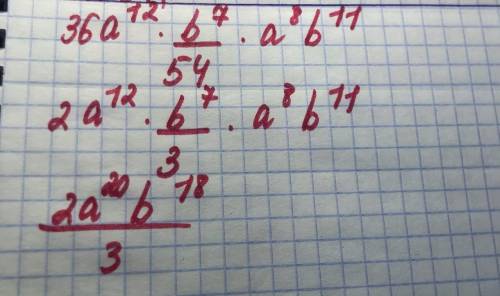 36a¹² · b⁷/54 · a⁸b¹¹
2a¹² · b⁷/3 · a⁸b¹¹
2a²⁰b¹⁸/3